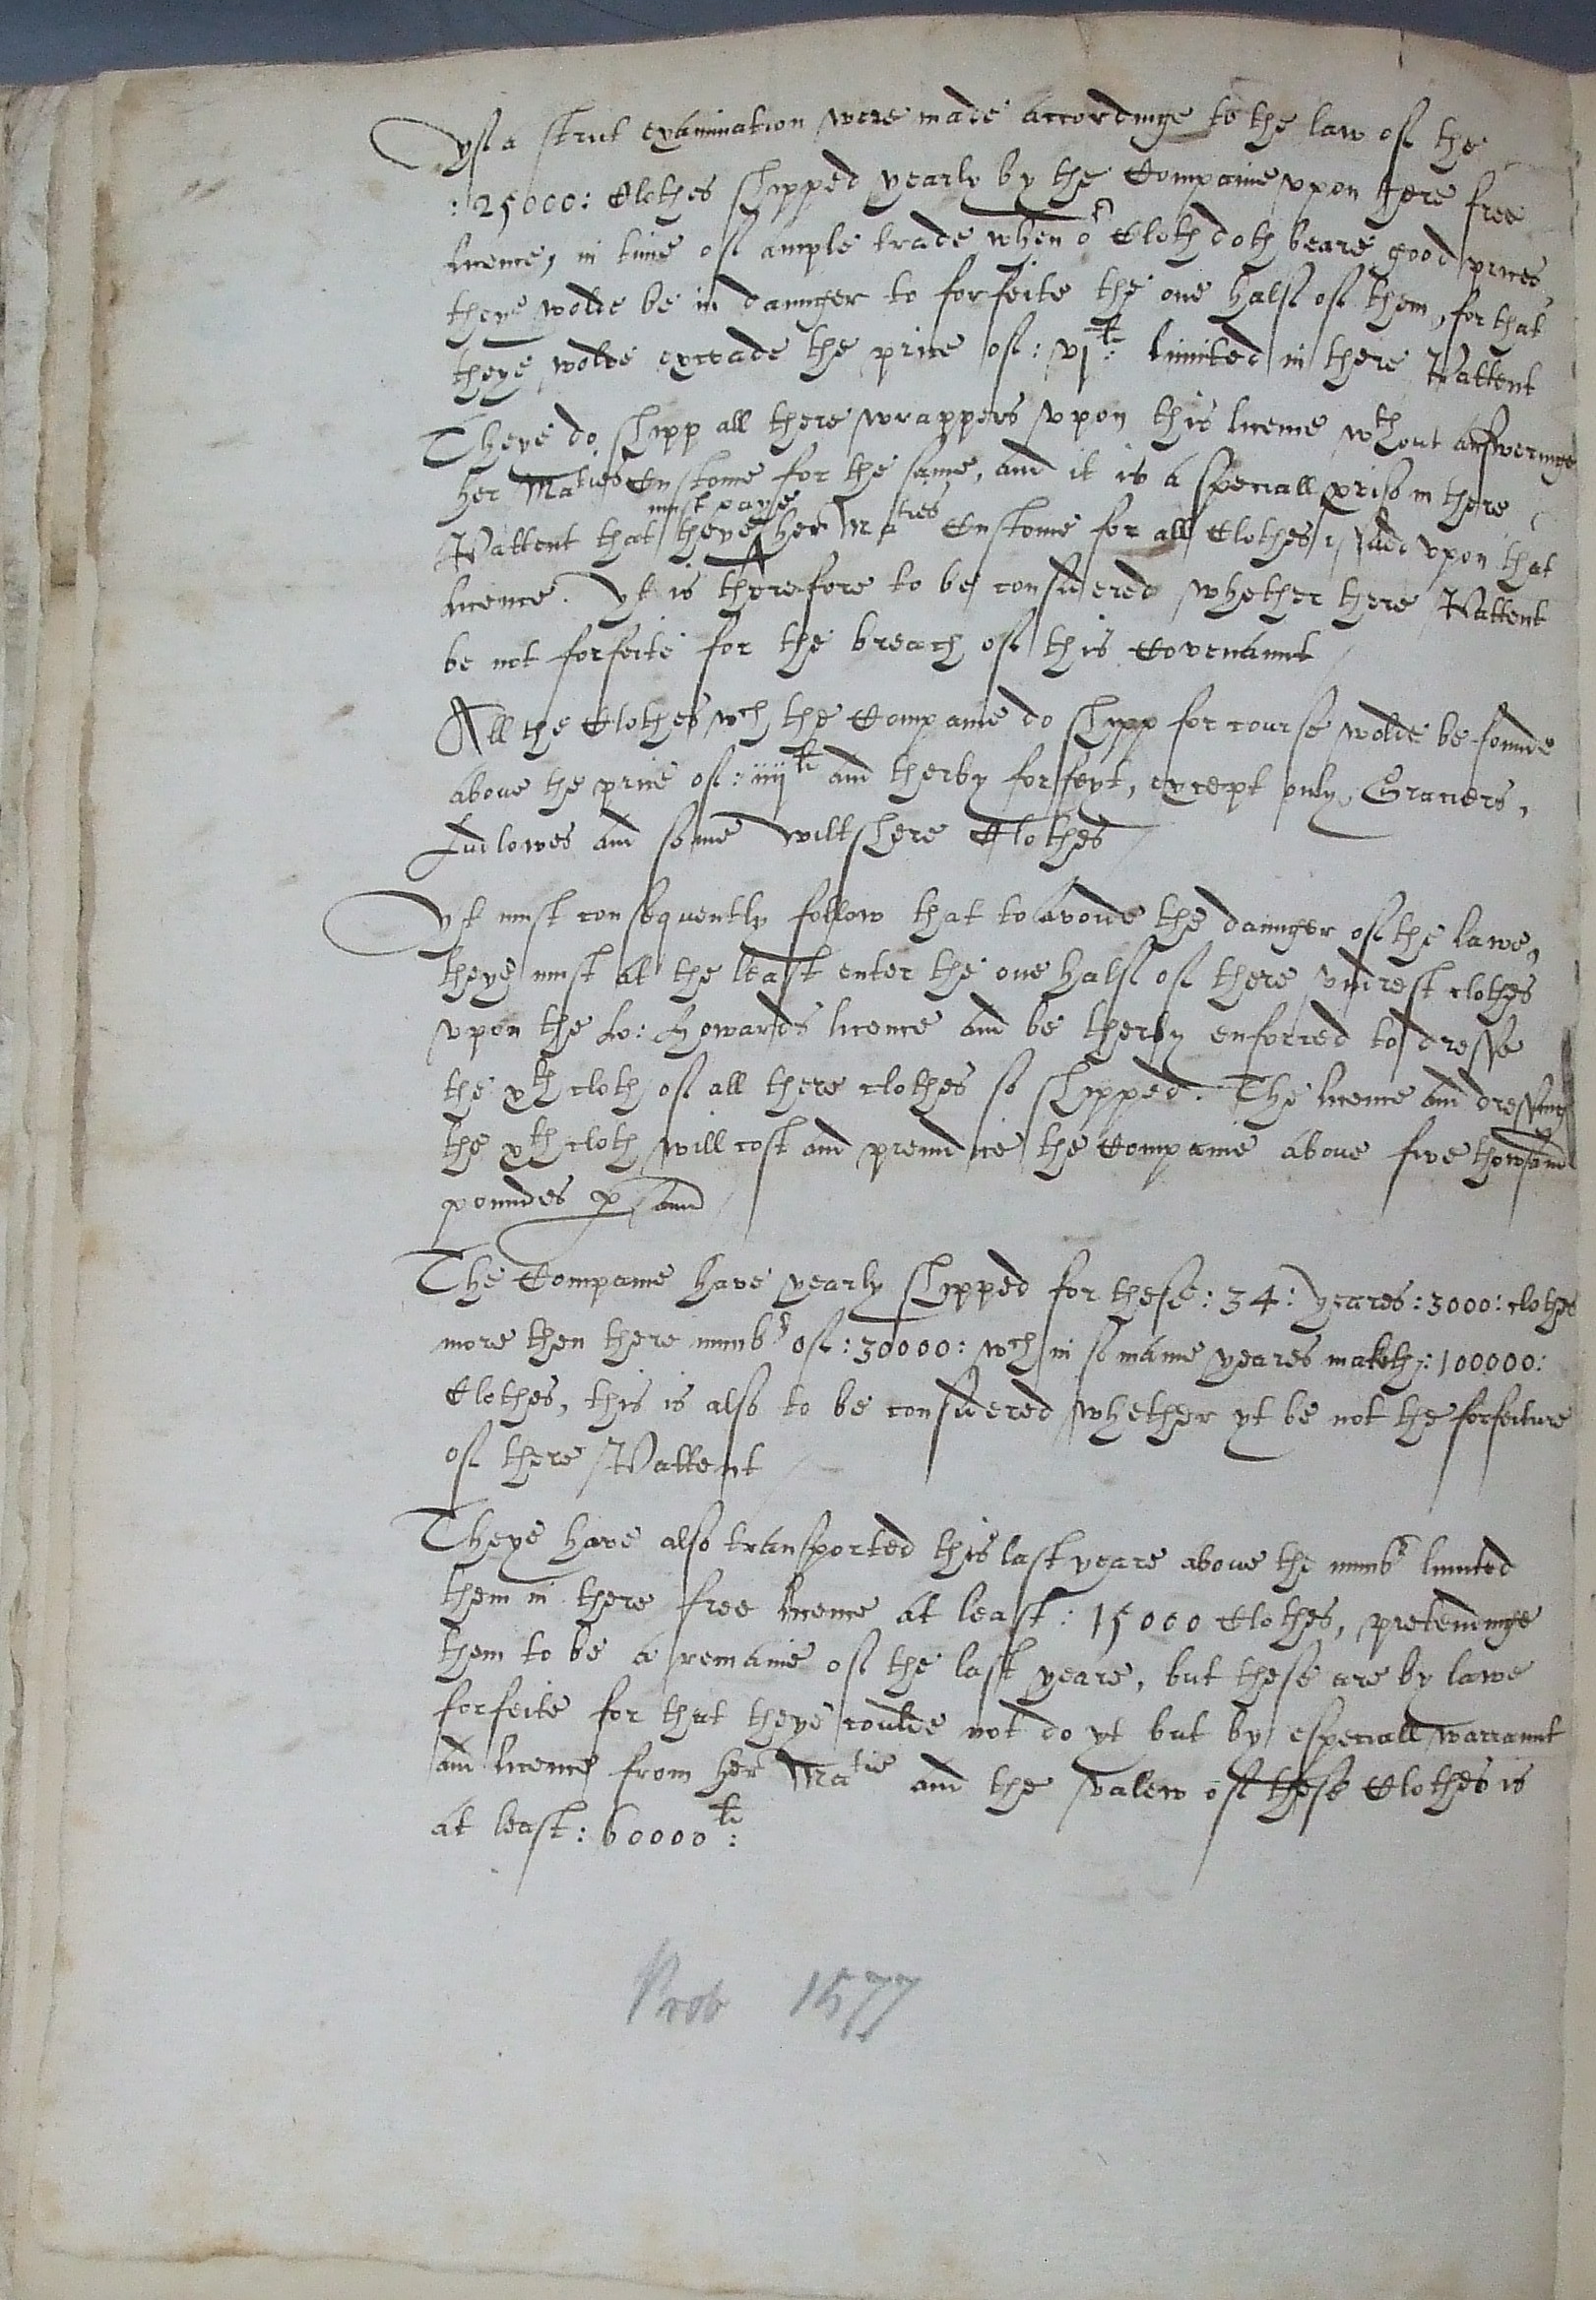 Yf a strict examination were made accordinge to the law of the
:25000: Clothes shipped yearly by the Companie vpon there free
licence, in time of ample trade when or Cloth doth beare good prices
theye wolde be in daunger to forfeite the one half of them, for that
theye wolde exceade the price of: vjli: limited in there Pattent
Theye do shipp all there wrappers vpon this licence wthout answeringe
her Maties Custome for the same, and it is a speciall in there
must paye
Pattent that theye her Maties Custome for all Clothes shipped vpon that
licence. Yt is therefore to be considered whether there Pattent
be not forfeite for the breach of this Covenaunt
All the Clothes wch the Companie do shipp for course wolde be founde
above the price of: iiijli and therby forfeyt, except only,
Ludlowes and some Wiltshere Clothes
Yt must consequently follow that to avoide the daunger of the lawe,
theye must at the least enter the one half of there vndrest clothes
vpon the Lo: Howards licence and be therby enforced to dresse
the xth cloth of all there clothes so shipped. The licence and dressing
the xth cloth will cost and preiudice the Companie above five thowsand
poundes p ann
The Companie have yearly shipped for these: 34: yeares: 3000: clothes
more then there numbr of: 30000: wch in so manie yeares maketh: 100000:
Clothes, this is also to be considered whether yt be not the forfeiture
of there Pattent
Theye have also transported this last yeare above the numbr limited
them in there free licence at least: 15000 Clothes, pretendinge
them to be a remaine of the last yeare, but these are by lawe
forfeite for that theye coulde not do yt but by especiall warraunt
and licence from her Matie and the valew of these Clothes is
at least: 60000li:
Prob 1577